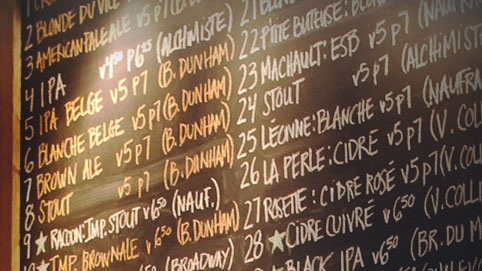 2 BLONDE DU VICE V5 P7
3 AMERICAN PALE ALE V5 P7 (B. DUNHAM)
4 IPA V4.50 P6.25 (ALCHIMISTE)
5 IPA BELGE V5 P7 (B. DUNHAM)
6 BLANCHE BELGE V5 P7 (B. DUNHAM)
7 BROWN ALE V5 P7 (B. DUNHAM)
8 STOUT V5 P7 (B. DUNHAM)
9 ★ RACOON: IMP. STOUT V6.50 (NAUF.)
★ IMP. BROWN ALE V6.50 (B. DUNHAM)
(BROADWAY)
21 BLONDE
22 P'TITE BUTEUSE: BLANC
23 MACHAULT: ESB V5 P7 (NAUFR
24 STOUT V5 P7 (ALCHIMIST
25 LÉONNE: BLANCHE V5 P7 (NAUFRA
26 LA PERLE: CIDRE V5 P7 (V. COLL
27 ROSETTE: CIDRE ROSÉ V5 P7 (V. COLLI
28 ★ CIDRE CUIVRÉ V6.50 (V. COLLI
★ BLACK IPA V6.50 (BR. DU M